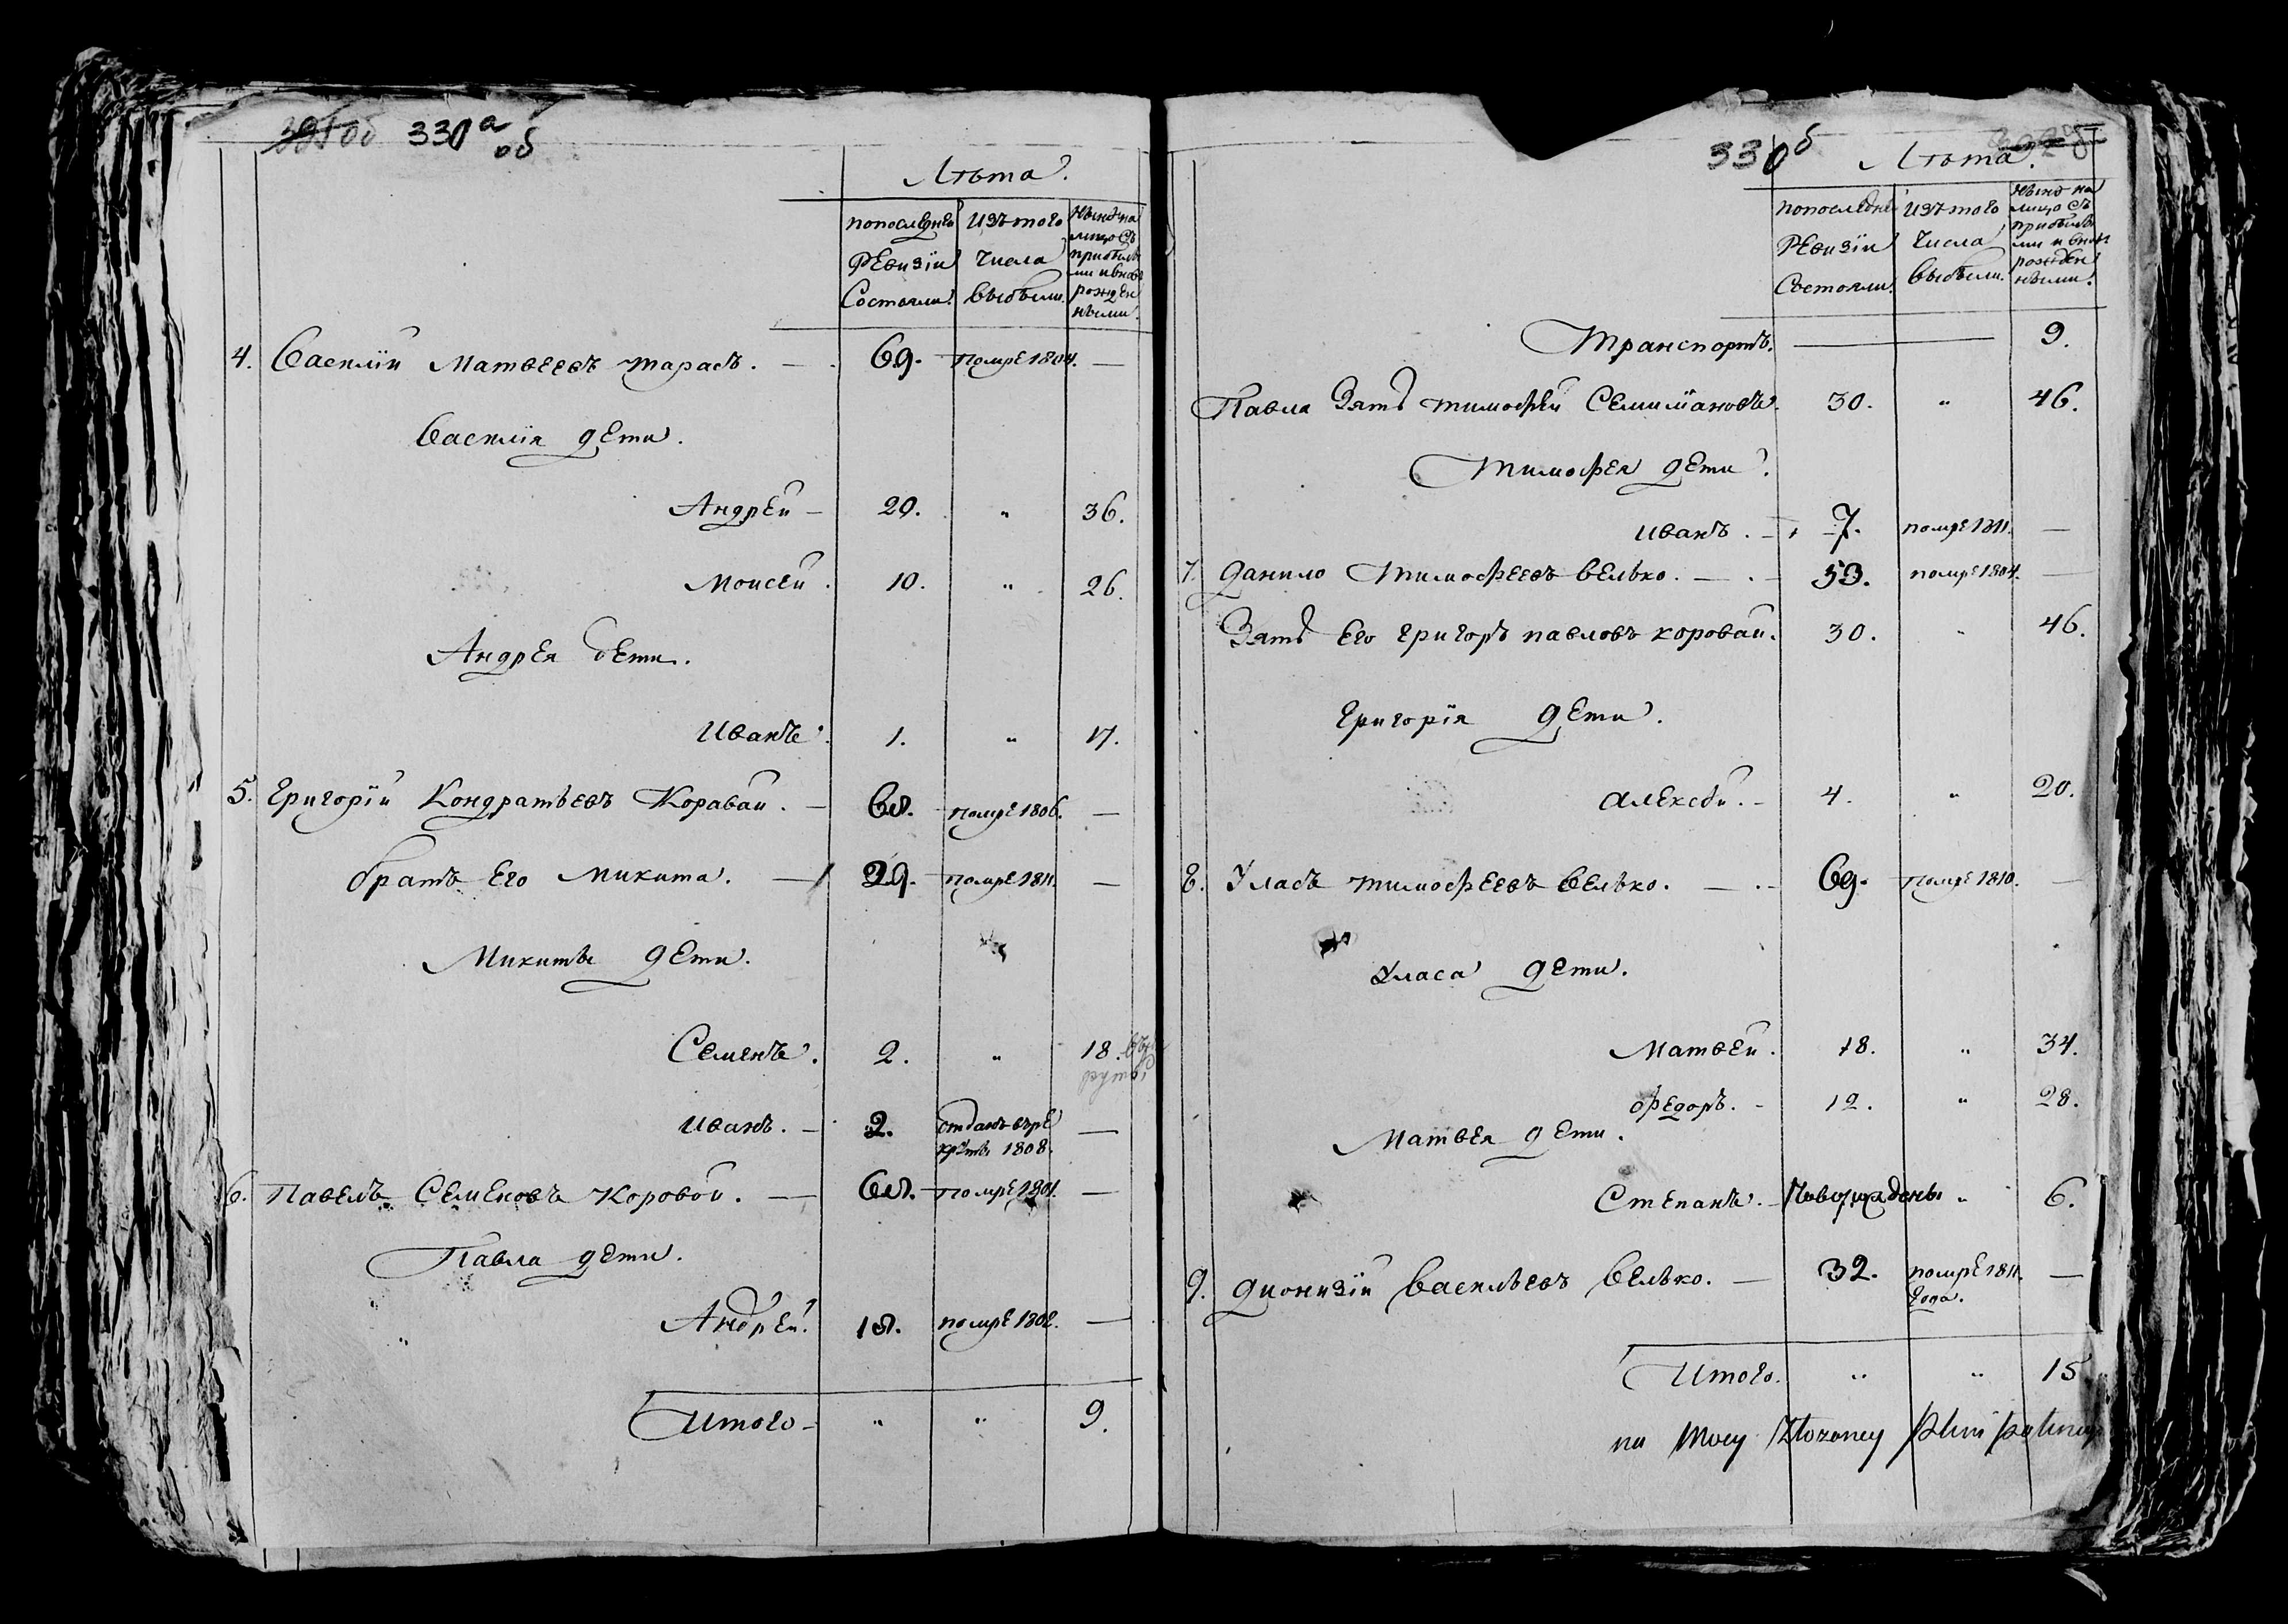 330 а об
Лѣта.
попослѣдней Ревизіи Состояли.
изъ того числа выбыли.
Нынѣ на лицо съ прибылыми и вновь рожденными.
4. Василій Матвеевъ тарасъ. — 69. помре 1804. —
Василія дети.
Андрей — 20. " 36.
Моисей. 10. " 26.
Андрея дети.
Иванъ. 1. " 17.
5. Григорій Кондратьевъ Коравай. — 68. помре 1806. —
братъ Его Микита. — 29. помре 1811. —
Микиты дети.
Семенъ. 2. " 18.
Иванъ. — 2. отданъ въ рекруты 1808. —
6. Павелъ Семеновъ Коровой. — 68. помре 1801. —
Павла дети.
Андрей. 18. помре 1802. —
Итого — " " 9.
330 б
Лѣта.
попоследней Ревизіи Состояли.
изъ того числа выбыли.
Нынѣ на лицо съ прибылыми и вновь рожденными.
Транспортъ. — 9.
Павла Зять тимофей Семиліановъ. 30. " 46.
Тимофея дети.
Иванъ. — 7. помре 1811. —
7. Данило Тимофеевъ Велько. — 53. помре 1804. —
Зять Его Григоръ павловъ коровай. 30. " 46.
Григорія дети.
Алексѣй. — 4. " 20.
8. Уласъ тимофеевъ Велько. — 69. помре 1810. —
Уласа дети.
Матвей. 18. " 34.
Федоръ. — 12. " 28.
Матвея дети.
Степанъ. — Новорождены " 6.
9. Дионизій Васильевъ Велько. — 32. помре 1811. года. —
Итого. " " 15
na Mocy Złozoney